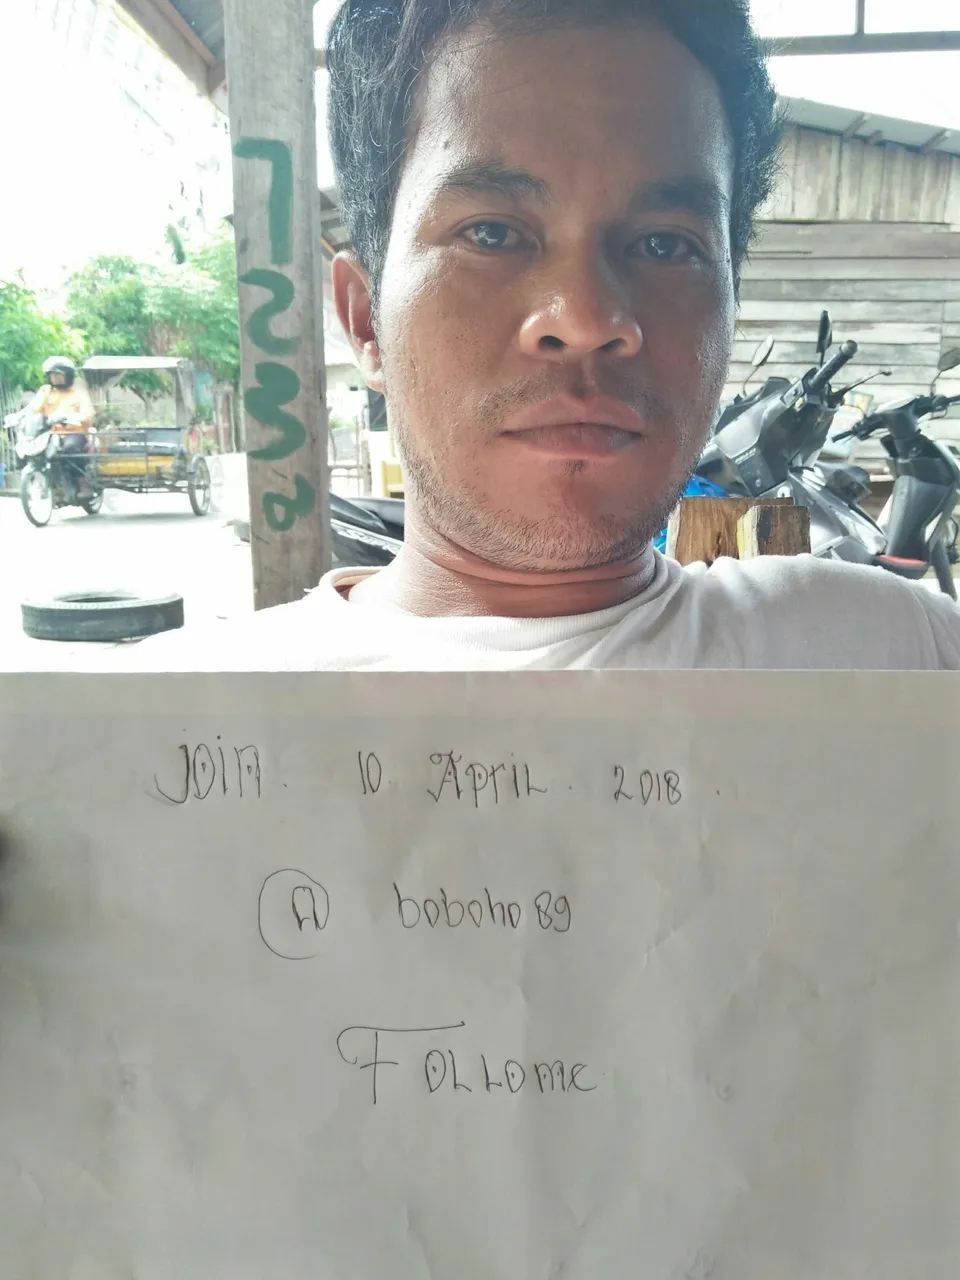 join. 10. April. 2018.
@ boboho89
Follome